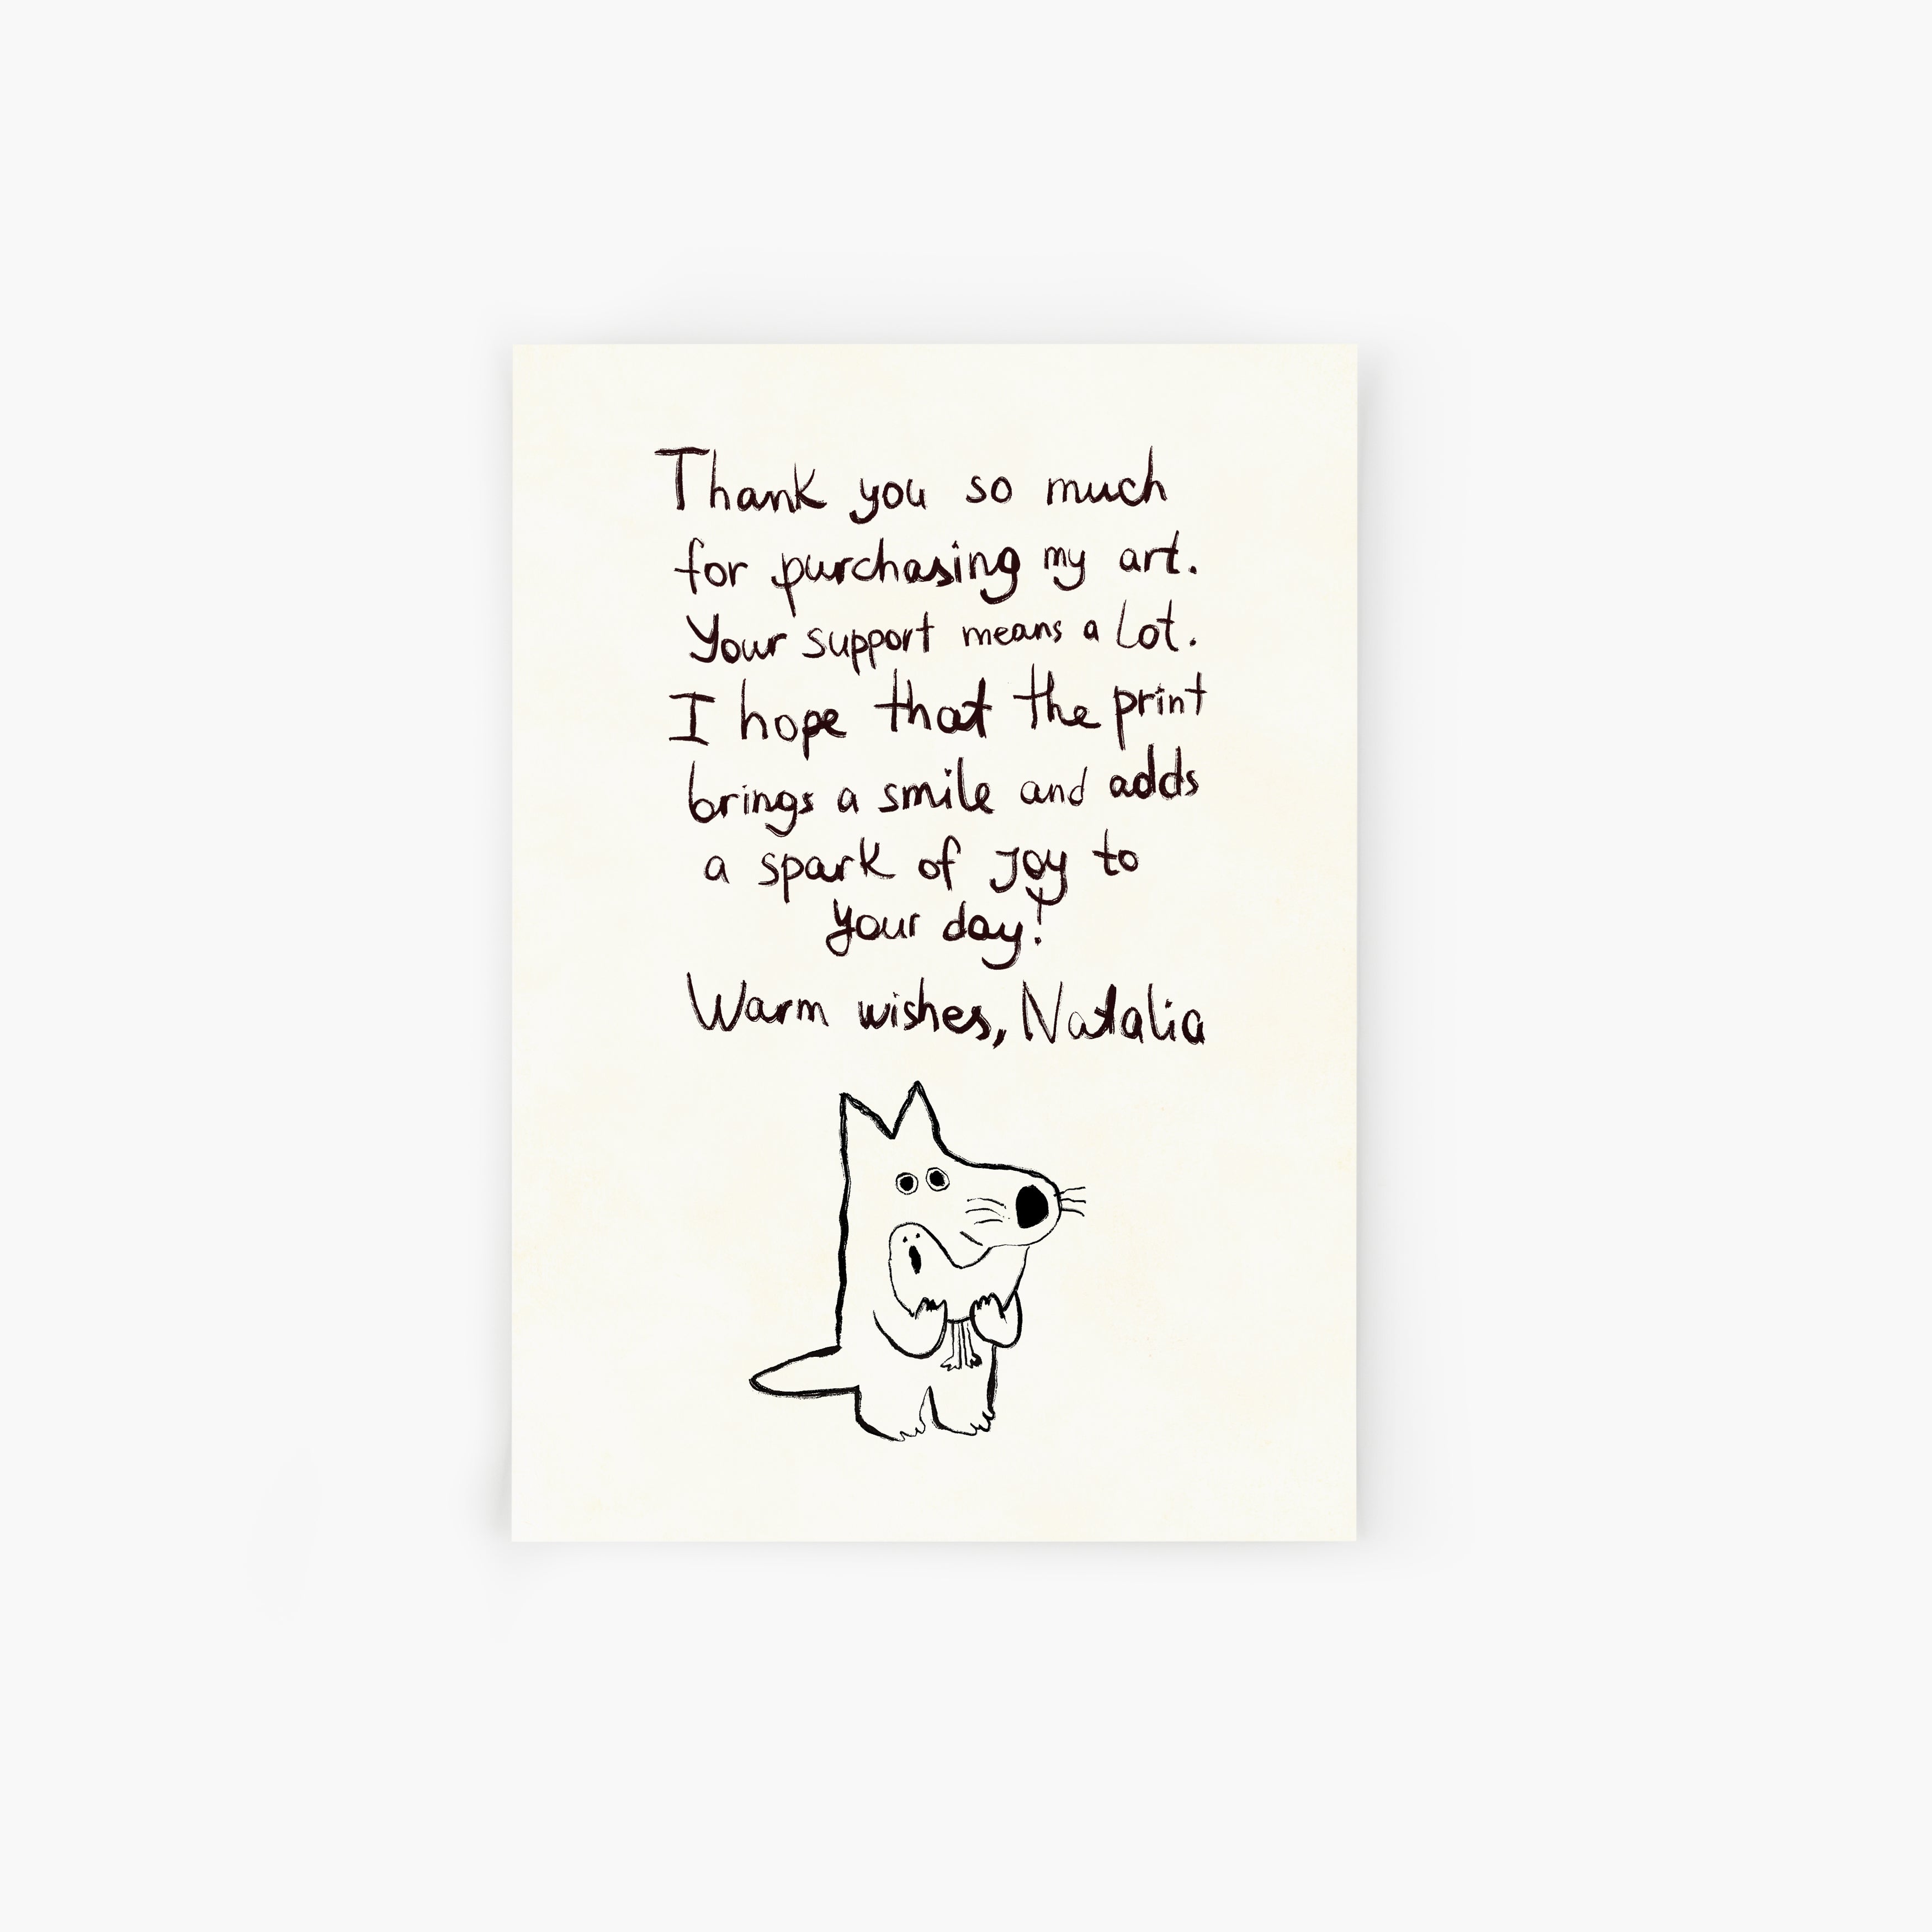 Thank you so much
for purchasing my art.
Your support means a lot.
I hope that the print
brings a smile and adds
a spark of joy to
your day!
Warm wishes, Natalia